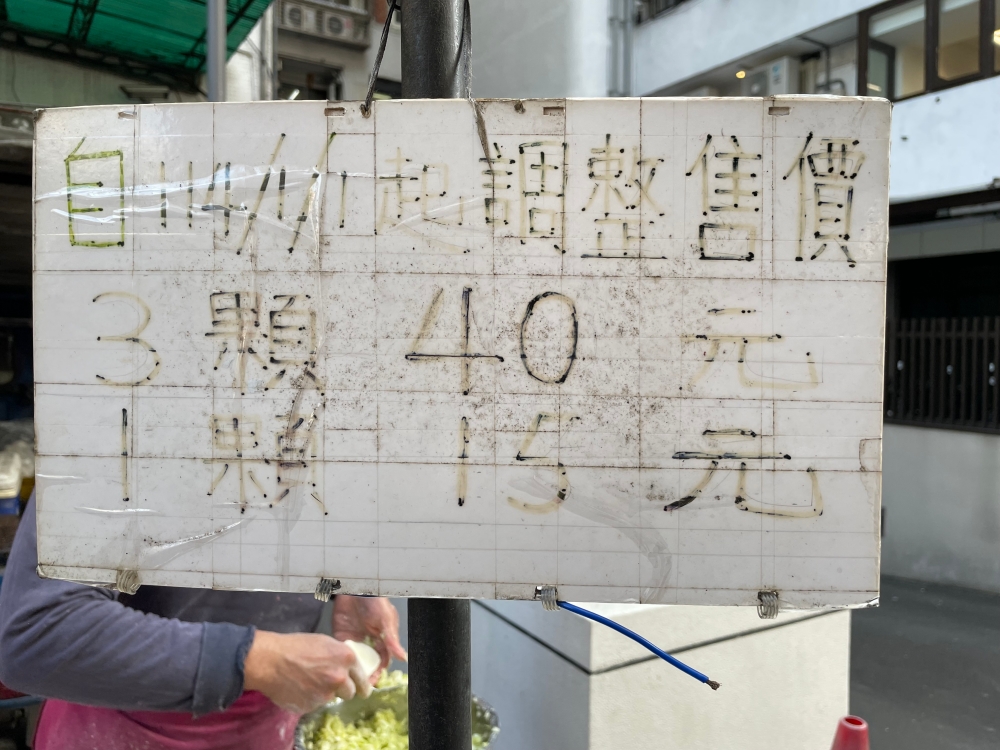 自114/4/1起調整售價
3顆 40 元
1顆 15 元